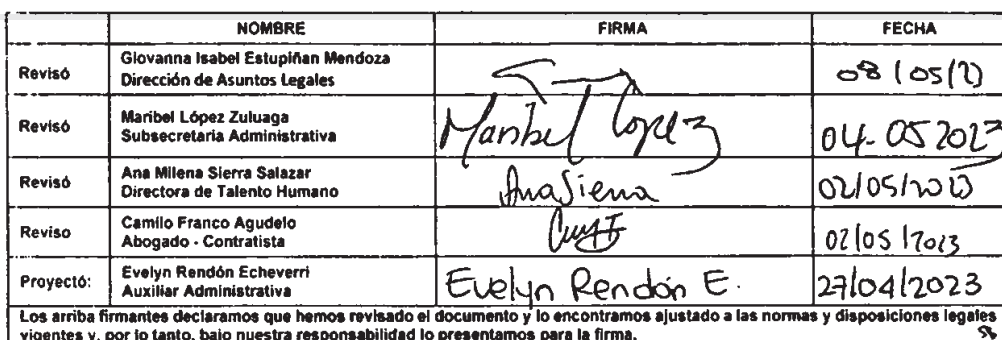 NOMBRE FIRMA FECHA
Revisó Giovanna Isabel Estupiñan Mendoza
Dirección de Asuntos Legales 08/05/23
Revisó Maribel López Zuluaga
Subsecretaria Administrativa Maribel López 04-05 2023
Revisó Ana Milena Sierra Salazar
Directora de Talento Humano Ana Sierra 02/05/2023
Reviso Camilo Franco Agudelo
Abogado - Contratista 02/05/2023
Proyectó: Evelyn Rendón Echeverri
Auxiliar Administrativa Evelyn Rendón E. 27/04/2023
Los arriba firmantes declaramos que hemos revisado el documento y lo encontramos ajustado a las normas y disposiciones legales
vigentes y, por lo tanto, bajo nuestra responsabilidad lo presentamos para la firma.